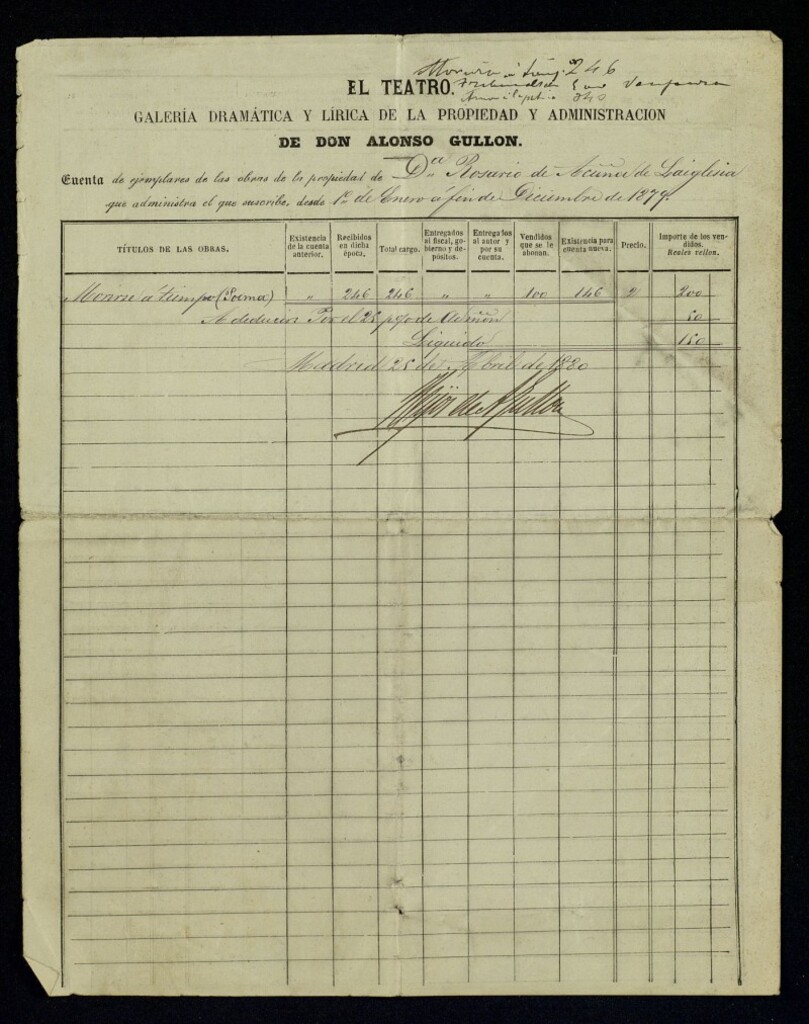 Morir á tiemp. 246
EL TEATRO.
Amor á la patria 340
GALERÍA DRAMÁTICA Y LÍRICA DE LA PROPIEDAD Y ADMINISTRACION
DE DON ALONSO GULLON.
Cuenta de ejemplares de las obras de la propiedad de Da. Rosario de Acuña de Laiglesia
que administra el que suscribe, desde 1o. de Enero á fin de Diciembre de 1879.
TÍTULOS DE LAS OBRAS. Existencia de la cuenta anterior. Recibidos en dicha época. Total cargo. Entregados al fiscal, gobierno y depósitos. Entregados al autor y por su cuenta. Vendidos que se le abonan. Existencia para cuenta nueva. Precio. Importe de los vendidos. Reales vellon.
Morirse á tiempo (Poema) " 246 246 " " 100 146 2 200
A deducir Por el 25 p% de Admón 50
Líquido 150
Madrid 25 de Abril de 1880
Hijos de A Gullon